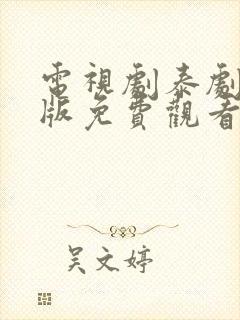 電視劇泰劇
版免費觀看
吴文婷